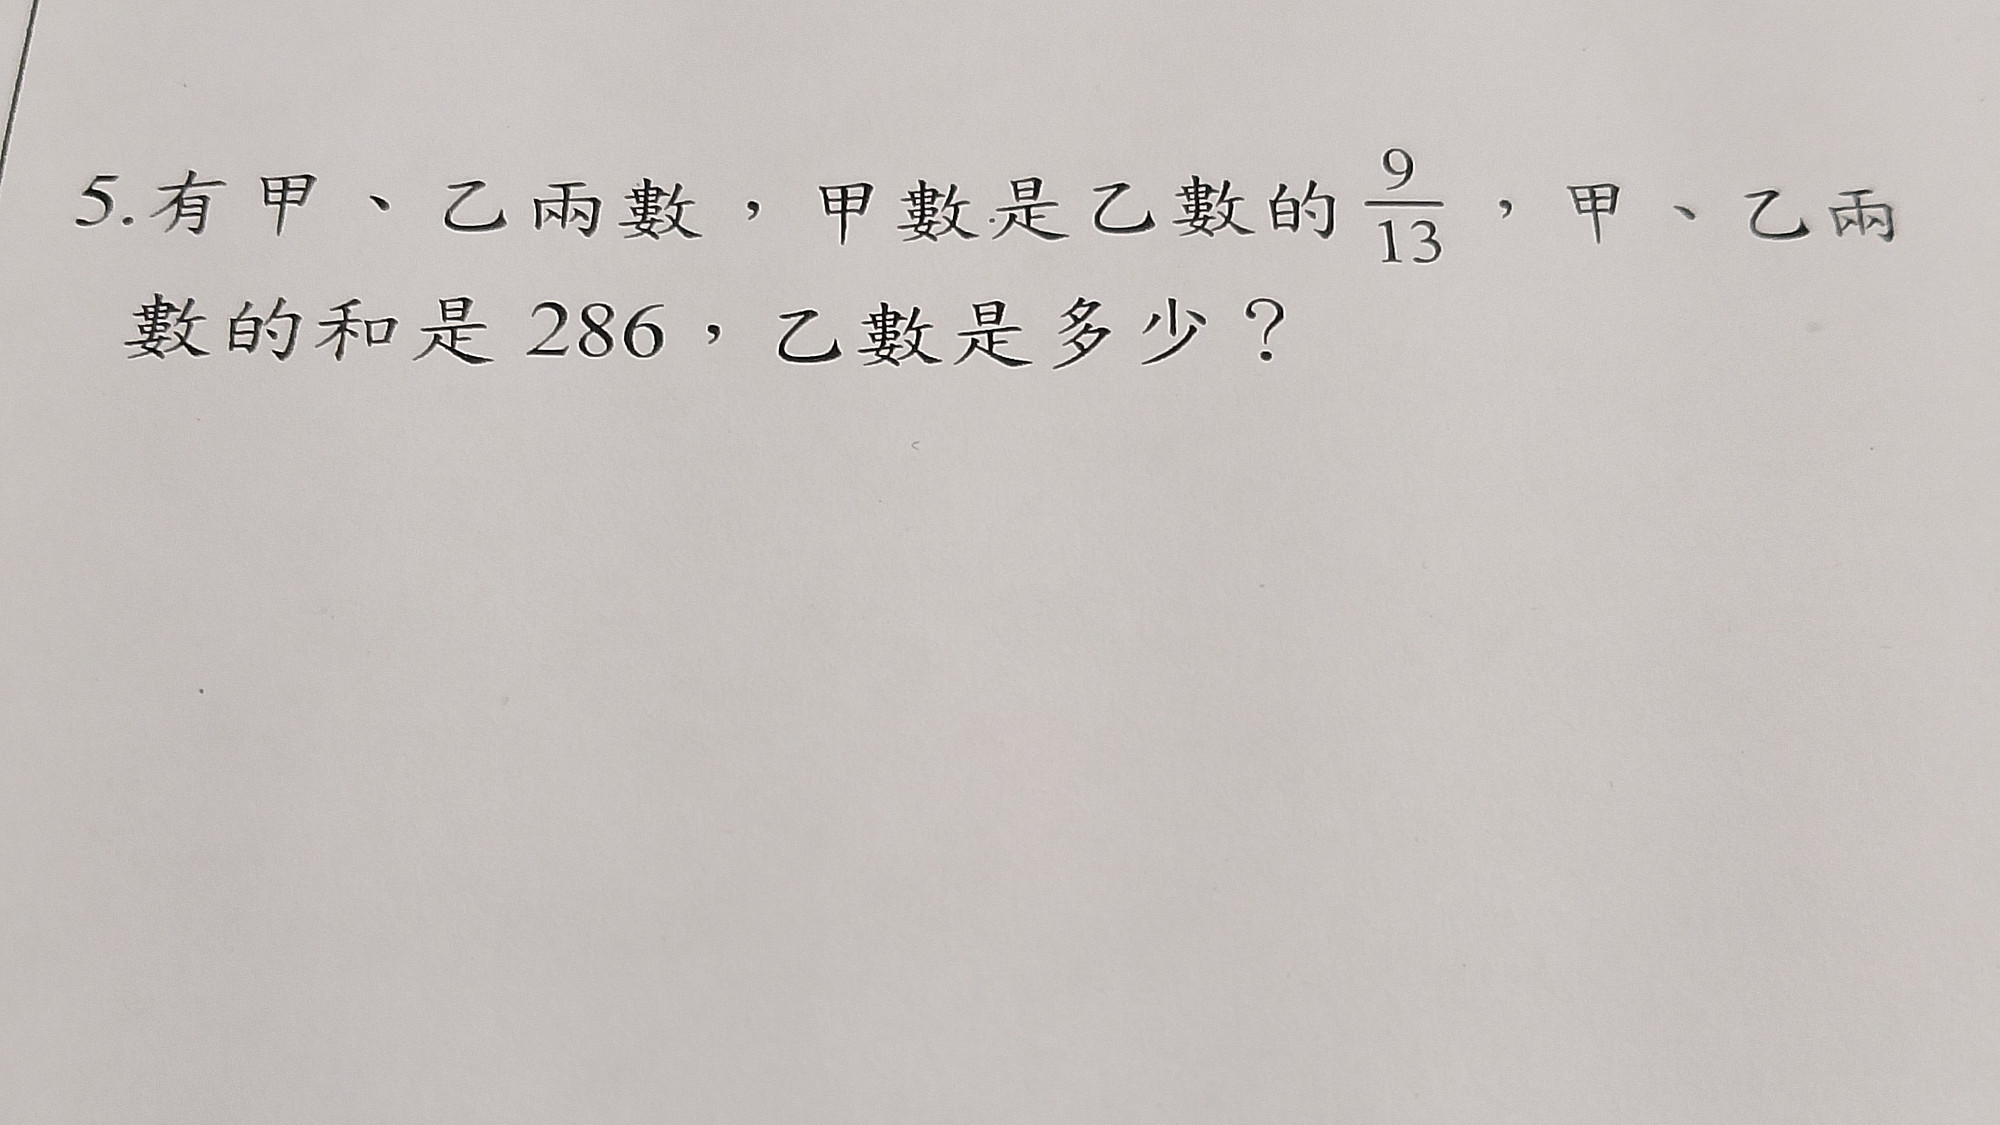 5.有甲、乙兩數，甲數是乙數的9/13，甲、乙兩
數的和是 286，乙數是多少？